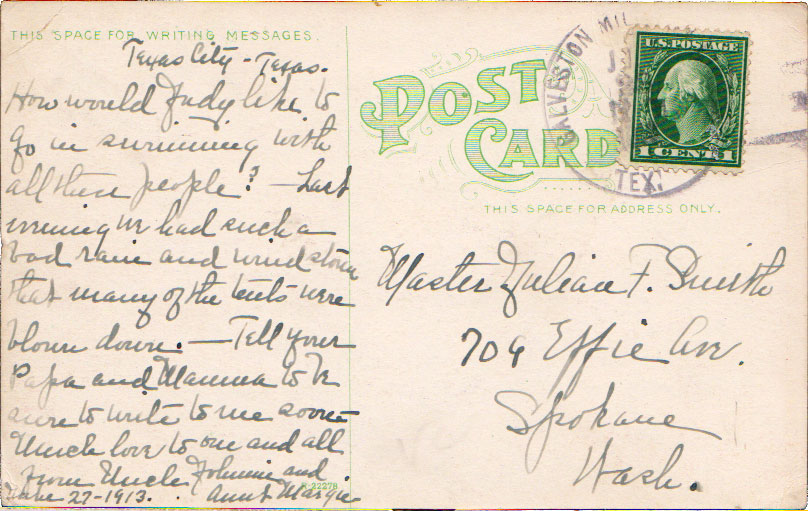 THIS SPACE FOR WRITING MESSAGES.
Texas City - Texas.
How would Judy like to
go in swimming with
all these people? - Last
evening we had such a
bad rain and wind storm
that many of the tents were
blown down. - Tell your
Papa and Mamma to be
sure to write to me soon -
Much love to one and all
from Uncle Johnnie and
June 27-1913. Aunt Margie
22278
POST
CARD
THIS SPACE FOR ADDRESS ONLY.
GALVESTON
TEX.
U.S. POSTAGE
1 CENT 1
Master Julian F. Smith
709 Effie Ave.
Spokane
Wash.